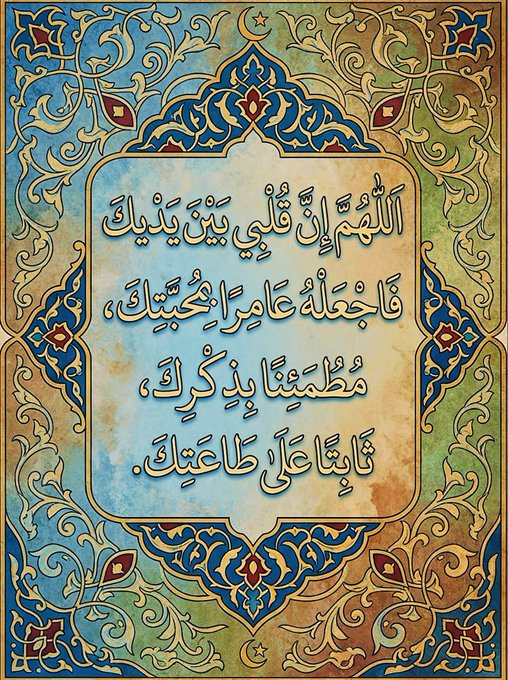 اَللّٰهُمَّ إِنَّ قُلْبِي بَيْنَ يَدْيكَ
فَاجْعَلْهُ عَامِرًا بِمُحَبَّتِكَ،
مُطُمَئِنًا بِذِكْرِكَ،
ثَابِتًا عَلَىٰ طَاعَتِكَ.